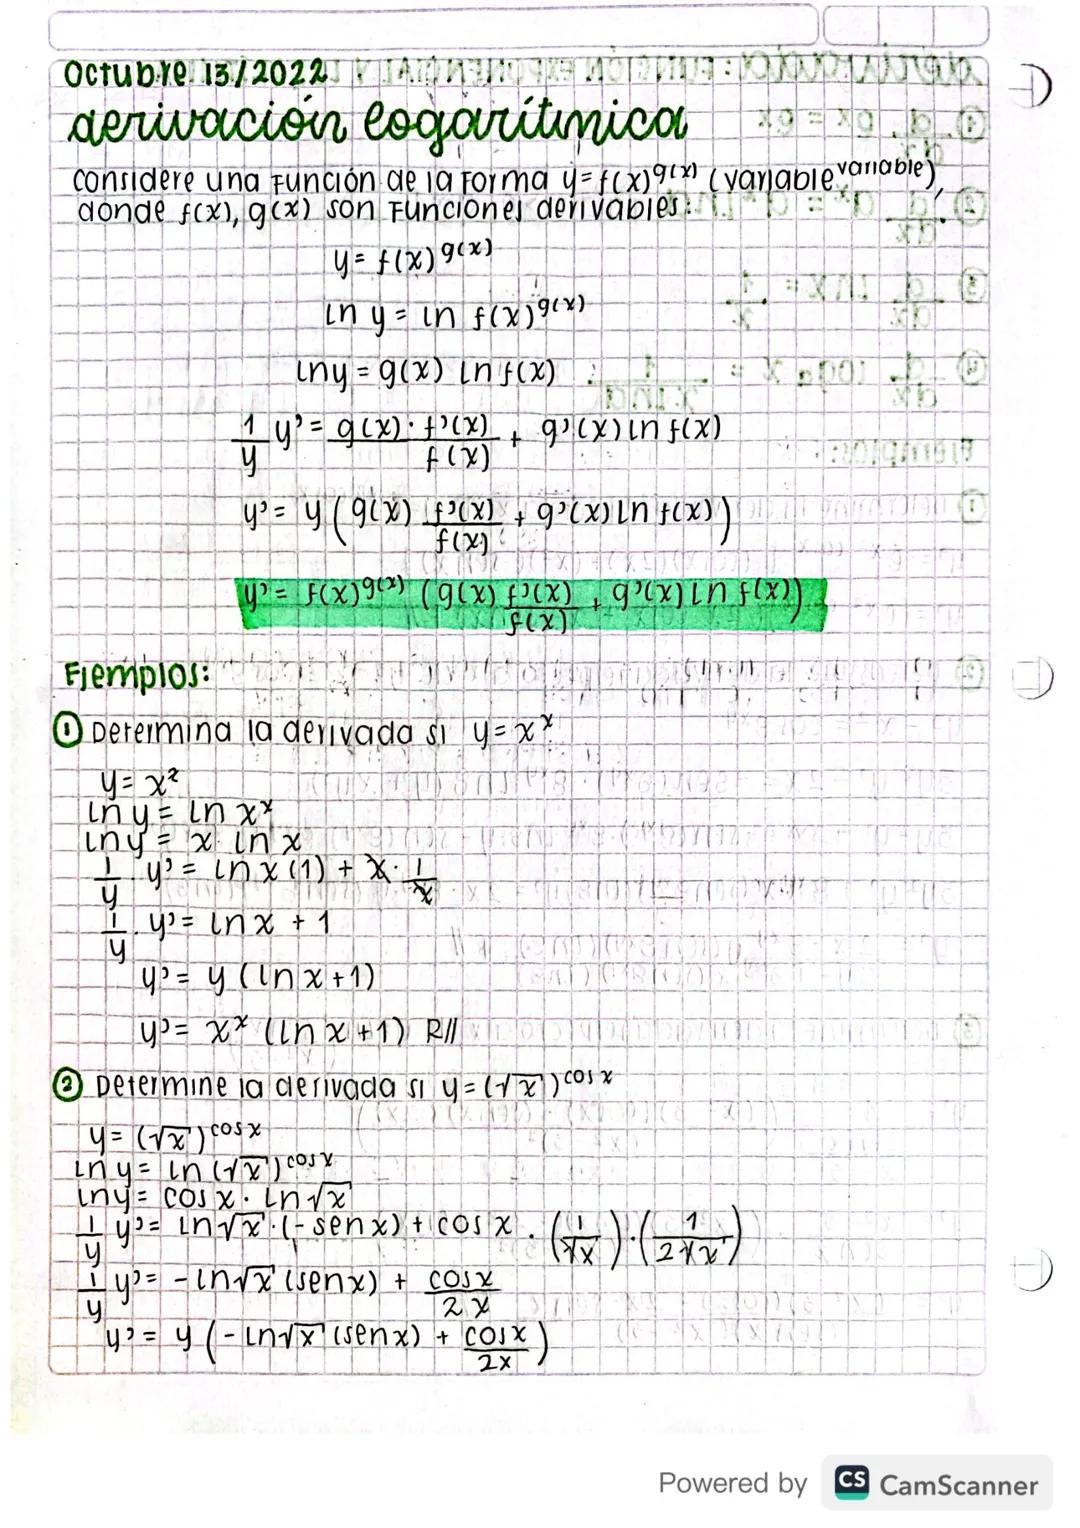 Octubre 13/2022
derivación logarítmica
Considere una Función de la Forma y = f(x)^g(x) (variable^variable),
donde f(x), g(x) son Funciones derivables:
y = f(x)^g(x)
ln y = ln f(x)^g(x)
ln y = g(x) ln f(x)
1/y y' = g(x) · f'(x)/f(x) + g'(x) ln f(x)
y' = y (g(x) f'(x)/f(x) + g'(x) ln f(x))
y' = f(x)^g(x) (g(x) f'(x)/f(x) + g'(x) ln f(x))
Ejemplos:
① Determina la derivada si y = x^x
y = x^2
ln y = ln x^x
ln y = x ln x
1/y · y' = ln x (1) + x · 1/x
1/y · y' = ln x + 1
y' = y (ln x + 1)
y' = x^x (ln x + 1) R//
② Determine la derivada si y = (√x)^cos x
y = (√x)^cos x
ln y = ln (√x)^cos x
ln y = cos x · ln √x
1/y y' = ln √x · (- sen x) + cos x · (1/√x) · (1/2√x)
1/y y' = - ln √x (sen x) + cos x/2x
y' = y (- ln √x (sen x) + cos x/2x)
Powered by CS CamScanner